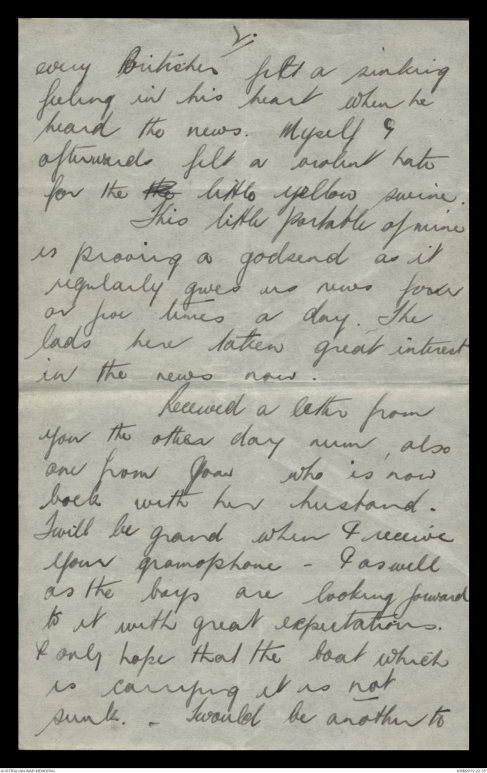 2.
every Britisher felt a sinking
feeling in his heart when he
heard the news. Myself I
afterwards felt a violent hate
for the the little yellow swine.
This little portable of mine
is prooving a godsend as it
regularly gives us news four
or five times a day. The
lads here taken great interest
in the news now.
Received a letter from
you the other day mum, also
one from Joan who is now
back with her husband.
Twill be grand when I receive
your gramophone - I as well
as the boys are looking forward
to it with great expectations.
I only hope that the boat which
is carrying it is not
sunk. - Twould be another to
AUSTRALIAN WAR MEMORIAL